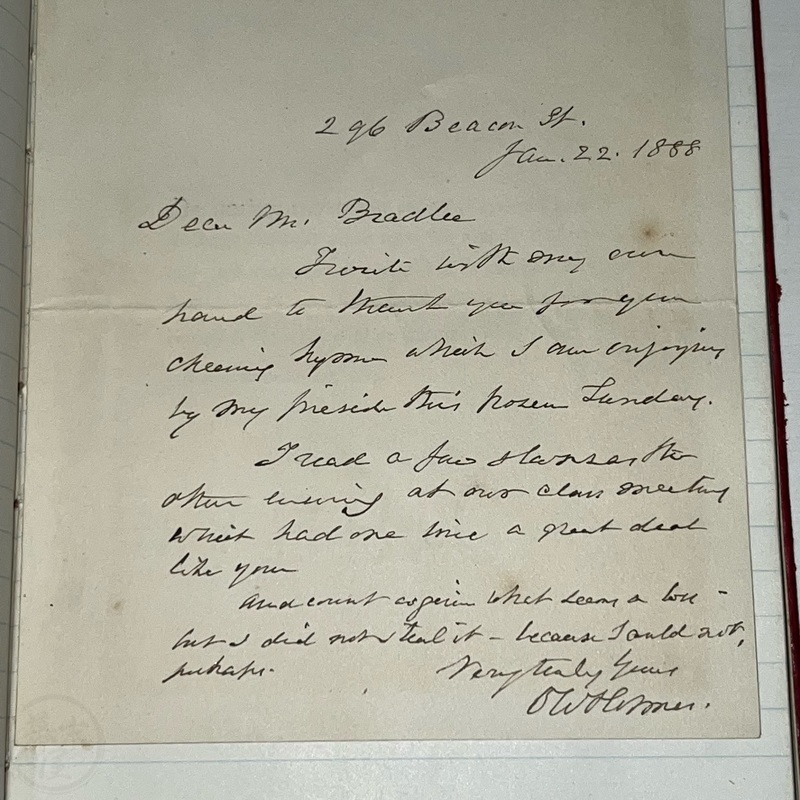 296 Beacon St.
Jan. 22. 1888
Dear Mr. Bradlee
I write with my own
hand to thank you for your
cheering hymn which I am enjoying
by my fireside this frozen Sunday.
I read a few stanzas the
other evening at our class meeting
which had one line a great deal
like your
and count as gain what seems a loss -
but I did not steal it - because I could not,
perhaps.
Very truly Yours
O W Holmes.